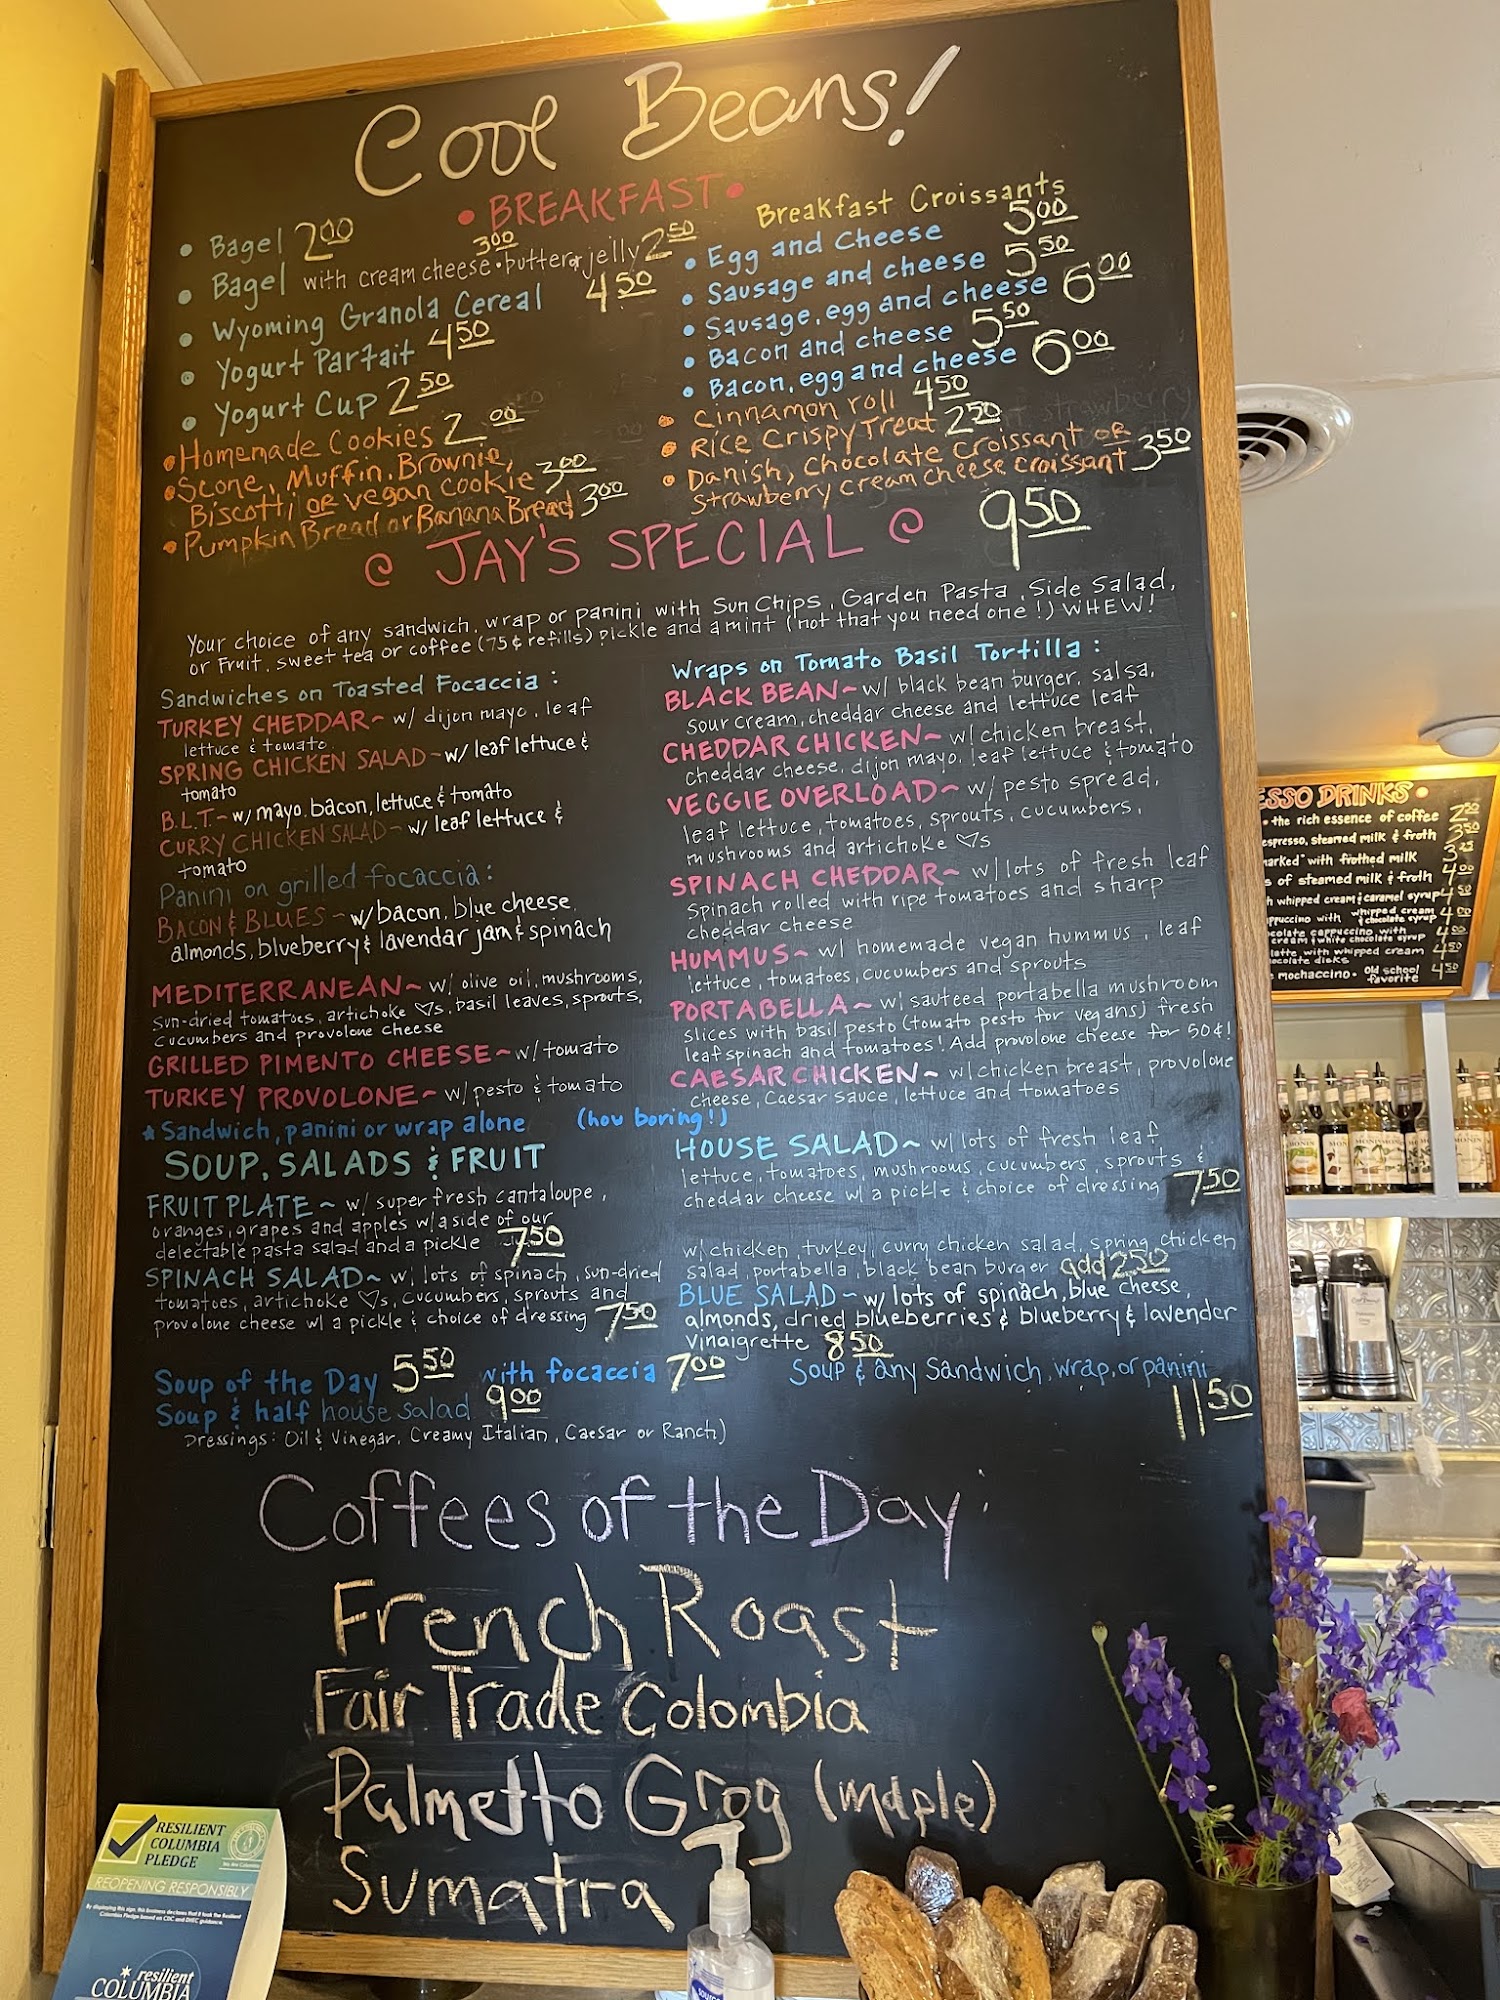 Cool Beans!
• BREAKFAST •
• Bagel 2.00
• Bagel with cream cheese 3.00 • butter or jelly 2.50
• Wyoming Granola Cereal 4.50
• Yogurt Parfait 4.50
• Yogurt Cup 2.50
• Homemade Cookies 2.00
• Scone, Muffin, Brownie,
Biscotti or vegan cookie 3.00
• Pumpkin Bread or Banana Bread 3.00
Breakfast Croissants
• Egg and Cheese 5.00
• Sausage and cheese 5.50
• Sausage, egg and cheese 6.00
• Bacon and cheese 5.50
• Bacon, egg and cheese 6.00
• Cinnamon roll 4.50
• Rice Crispy Treat 2.50
• Danish, Chocolate Croissant or
Strawberry cream cheese croissant 3.50
@ JAY'S SPECIAL @ 9.50
Your choice of any sandwich, wrap or panini with Sun Chips, Garden Pasta, Side Salad,
or Fruit, sweet tea or coffee (75¢ refills) pickle and a mint (not that you need one!) WHEW!
Sandwiches on Toasted Focaccia:
TURKEY CHEDDAR~ w/ dijon mayo, leaf
lettuce & tomato
SPRING CHICKEN SALAD~ w/ leaf lettuce &
tomato
B.L.T~ w/ mayo, bacon, lettuce & tomato
CURRY CHICKEN SALAD~ w/ leaf lettuce &
tomato
Panini on grilled focaccia:
BACON & BLUES~ w/ bacon, blue cheese,
almonds, blueberry & lavendar jam & spinach
MEDITERRANEAN~ w/ olive oil, mushrooms,
sun-dried tomatoes, artichoke ♡s, basil leaves, sprouts,
cucumbers and provolone cheese
GRILLED PIMENTO CHEESE~ w/ tomato
TURKEY PROVOLONE~ w/ pesto & tomato
★ Sandwich, panini or wrap alone (how boring!)
Wraps on Tomato Basil Tortilla:
BLACK BEAN~ w/ black bean burger, salsa,
sour cream, cheddar cheese and lettuce leaf
CHEDDAR CHICKEN~ w/ chicken breast,
cheddar cheese, dijon mayo, leaf lettuce & tomato
VEGGIE OVERLOAD~ w/ pesto spread,
leaf lettuce, tomatoes, sprouts, cucumbers,
mushrooms and artichoke ♡s
SPINACH CHEDDAR~ w/ lots of fresh leaf
spinach rolled with ripe tomatoes and sharp
cheddar cheese
HUMMUS~ w/ homemade vegan hummus, leaf
lettuce, tomatoes, cucumbers and sprouts
PORTABELLA~ w/ sauteed portabella mushroom
slices with basil pesto (tomato pesto for vegans) fresh
leaf spinach and tomatoes! Add provolone cheese for 50¢!
CAESAR CHICKEN~ w/ chicken breast, provolone
cheese, Caesar sauce, lettuce and tomatoes
SOUP, SALADS & FRUIT
FRUIT PLATE~ w/ super fresh cantaloupe,
oranges, grapes and apples w/ a side of our
delectable pasta salad and a pickle 7.50
SPINACH SALAD~ w/ lots of spinach, sun-dried
tomatoes, artichoke ♡s, cucumbers, sprouts and
provolone cheese w/ a pickle & choice of dressing 7.50
HOUSE SALAD~ w/ lots of fresh leaf
lettuce, tomatoes, mushrooms, cucumbers, sprouts &
cheddar cheese w/ a pickle & choice of dressing 7.50
w/ chicken, turkey, curry chicken salad, spring chicken
salad, portabella, black bean burger add 2.50
BLUE SALAD~ w/ lots of spinach, blue cheese,
almonds, dried blueberries & blueberry & lavender
vinaigrette 8.50
Soup of the Day 5.50 with focaccia 7.00
Soup & half house salad 9.00
Soup & any Sandwich, wrap, or panini
11.50
Dressings: Oil & Vinegar, Creamy Italian, Caesar or Ranch)
Coffees of the Day:
French Roast
Fair Trade Colombia
Palmetto Grog (maple)
Sumatra
ESSO DRINKS •
• the rich essence of coffee 2.50
espresso, steamed milk & froth 3.50
marked" with frothed milk 3.25
s of steamed milk & froth 4.00
h whipped cream & caramel syrup 4.50
ppuccino with whipped cream & chocolate syrup 4.00
ocolate cappuccino with
cream & white chocolate syrup 4.50
latte with whipped cream
ocolate disks 4.50
mochaccino • Old school favorite 4.50
RESILIENT
COLUMBIA
PLEDGE
REOPENING RESPONSIBLY
resilient
COLUMBIA